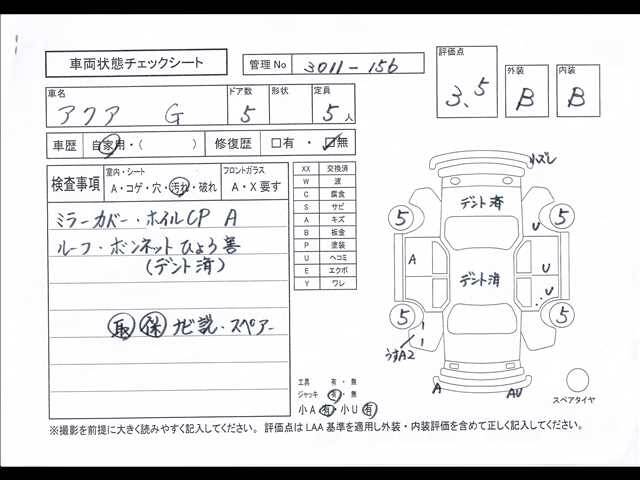 車両状態チェックシート
管理No 3011-156
評価点 3.5
外装 B
内装 B
車名 アクア G
ドア数 5
形状
定員 5人
車歴 自家用・( )
修復歴 □有・☑無
検査事項
室内・シート
A・コゲ・穴・汚れ・破れ
フロントガラス
A・X要す
ミラーカバー・ホイルCP A
ルーフ・ボンネットひょう害
(デント済)
取 保 ナビ説・スペアー
XX 交換済
W 波
C 腐食
S サビ
A キズ
B 板金
P 塗装
U ヘコミ
E エクボ
Y ワレ
小ズレ
デント済
5 5
U
A
デント済
U
U
5 5
うすA2
A AU
スペアタイヤ
工具 有・無
ジャッキ 有・無
小A有・小U有
※撮影を前提に大きく読みやすく記入してください。評価点はLAA基準を適用し外装・内装評価を含めて正しく記入してください。